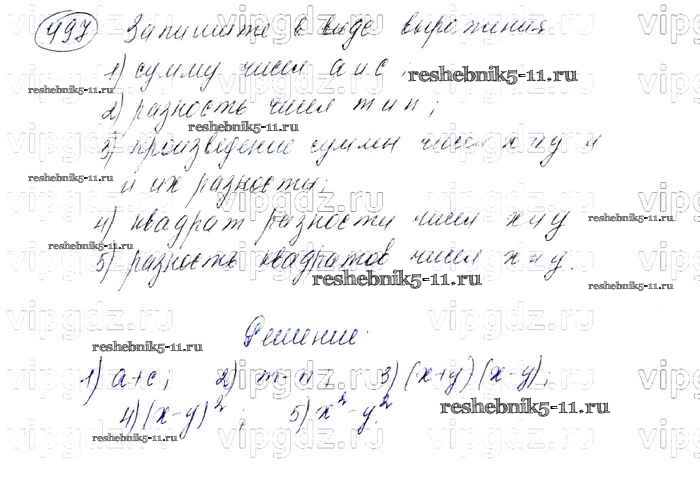 497 Запишите в виде выражения
1) сумму чисел a и c
2) разность чисел m и n;
3) произведение суммы чисел x и y и
и их разности;
4) квадрат разности чисел x и y
5) разность квадратов чисел x и y.
Решение:
1) a+c; 2) m-n; 3) (x+y)(x-y);
4) (x-y)²; 5) x²-y².
reshebnik5-11.ru
vipgdz.ru